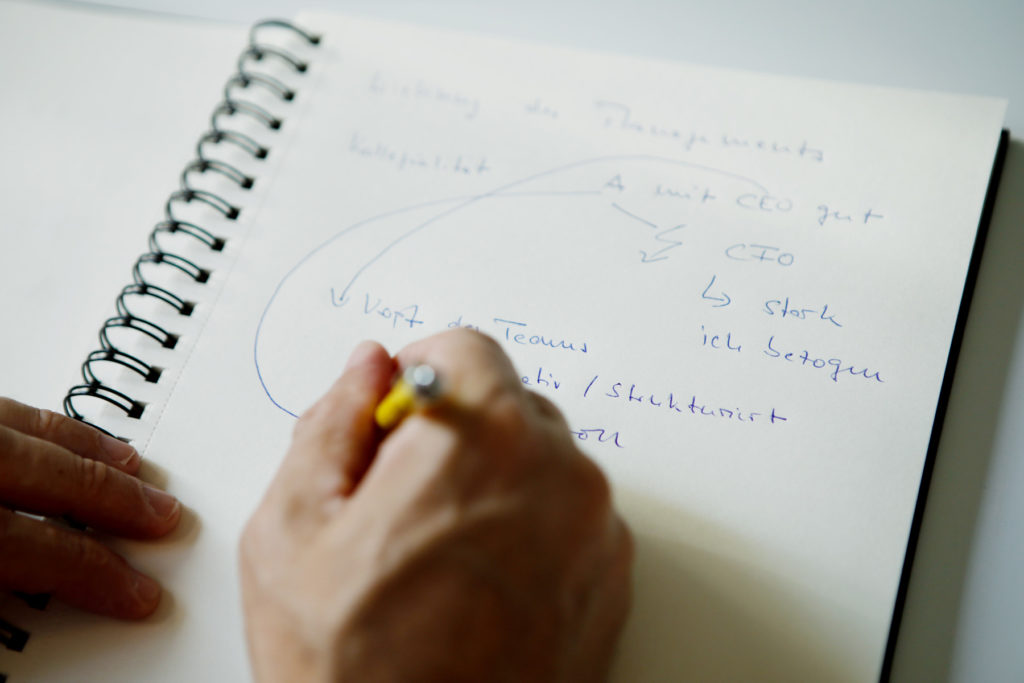 des Managements
Kollegialität
A mit CEO gut
CFO
↳ stark
ich bezogen
Kopf des Teams
/ strukturiert